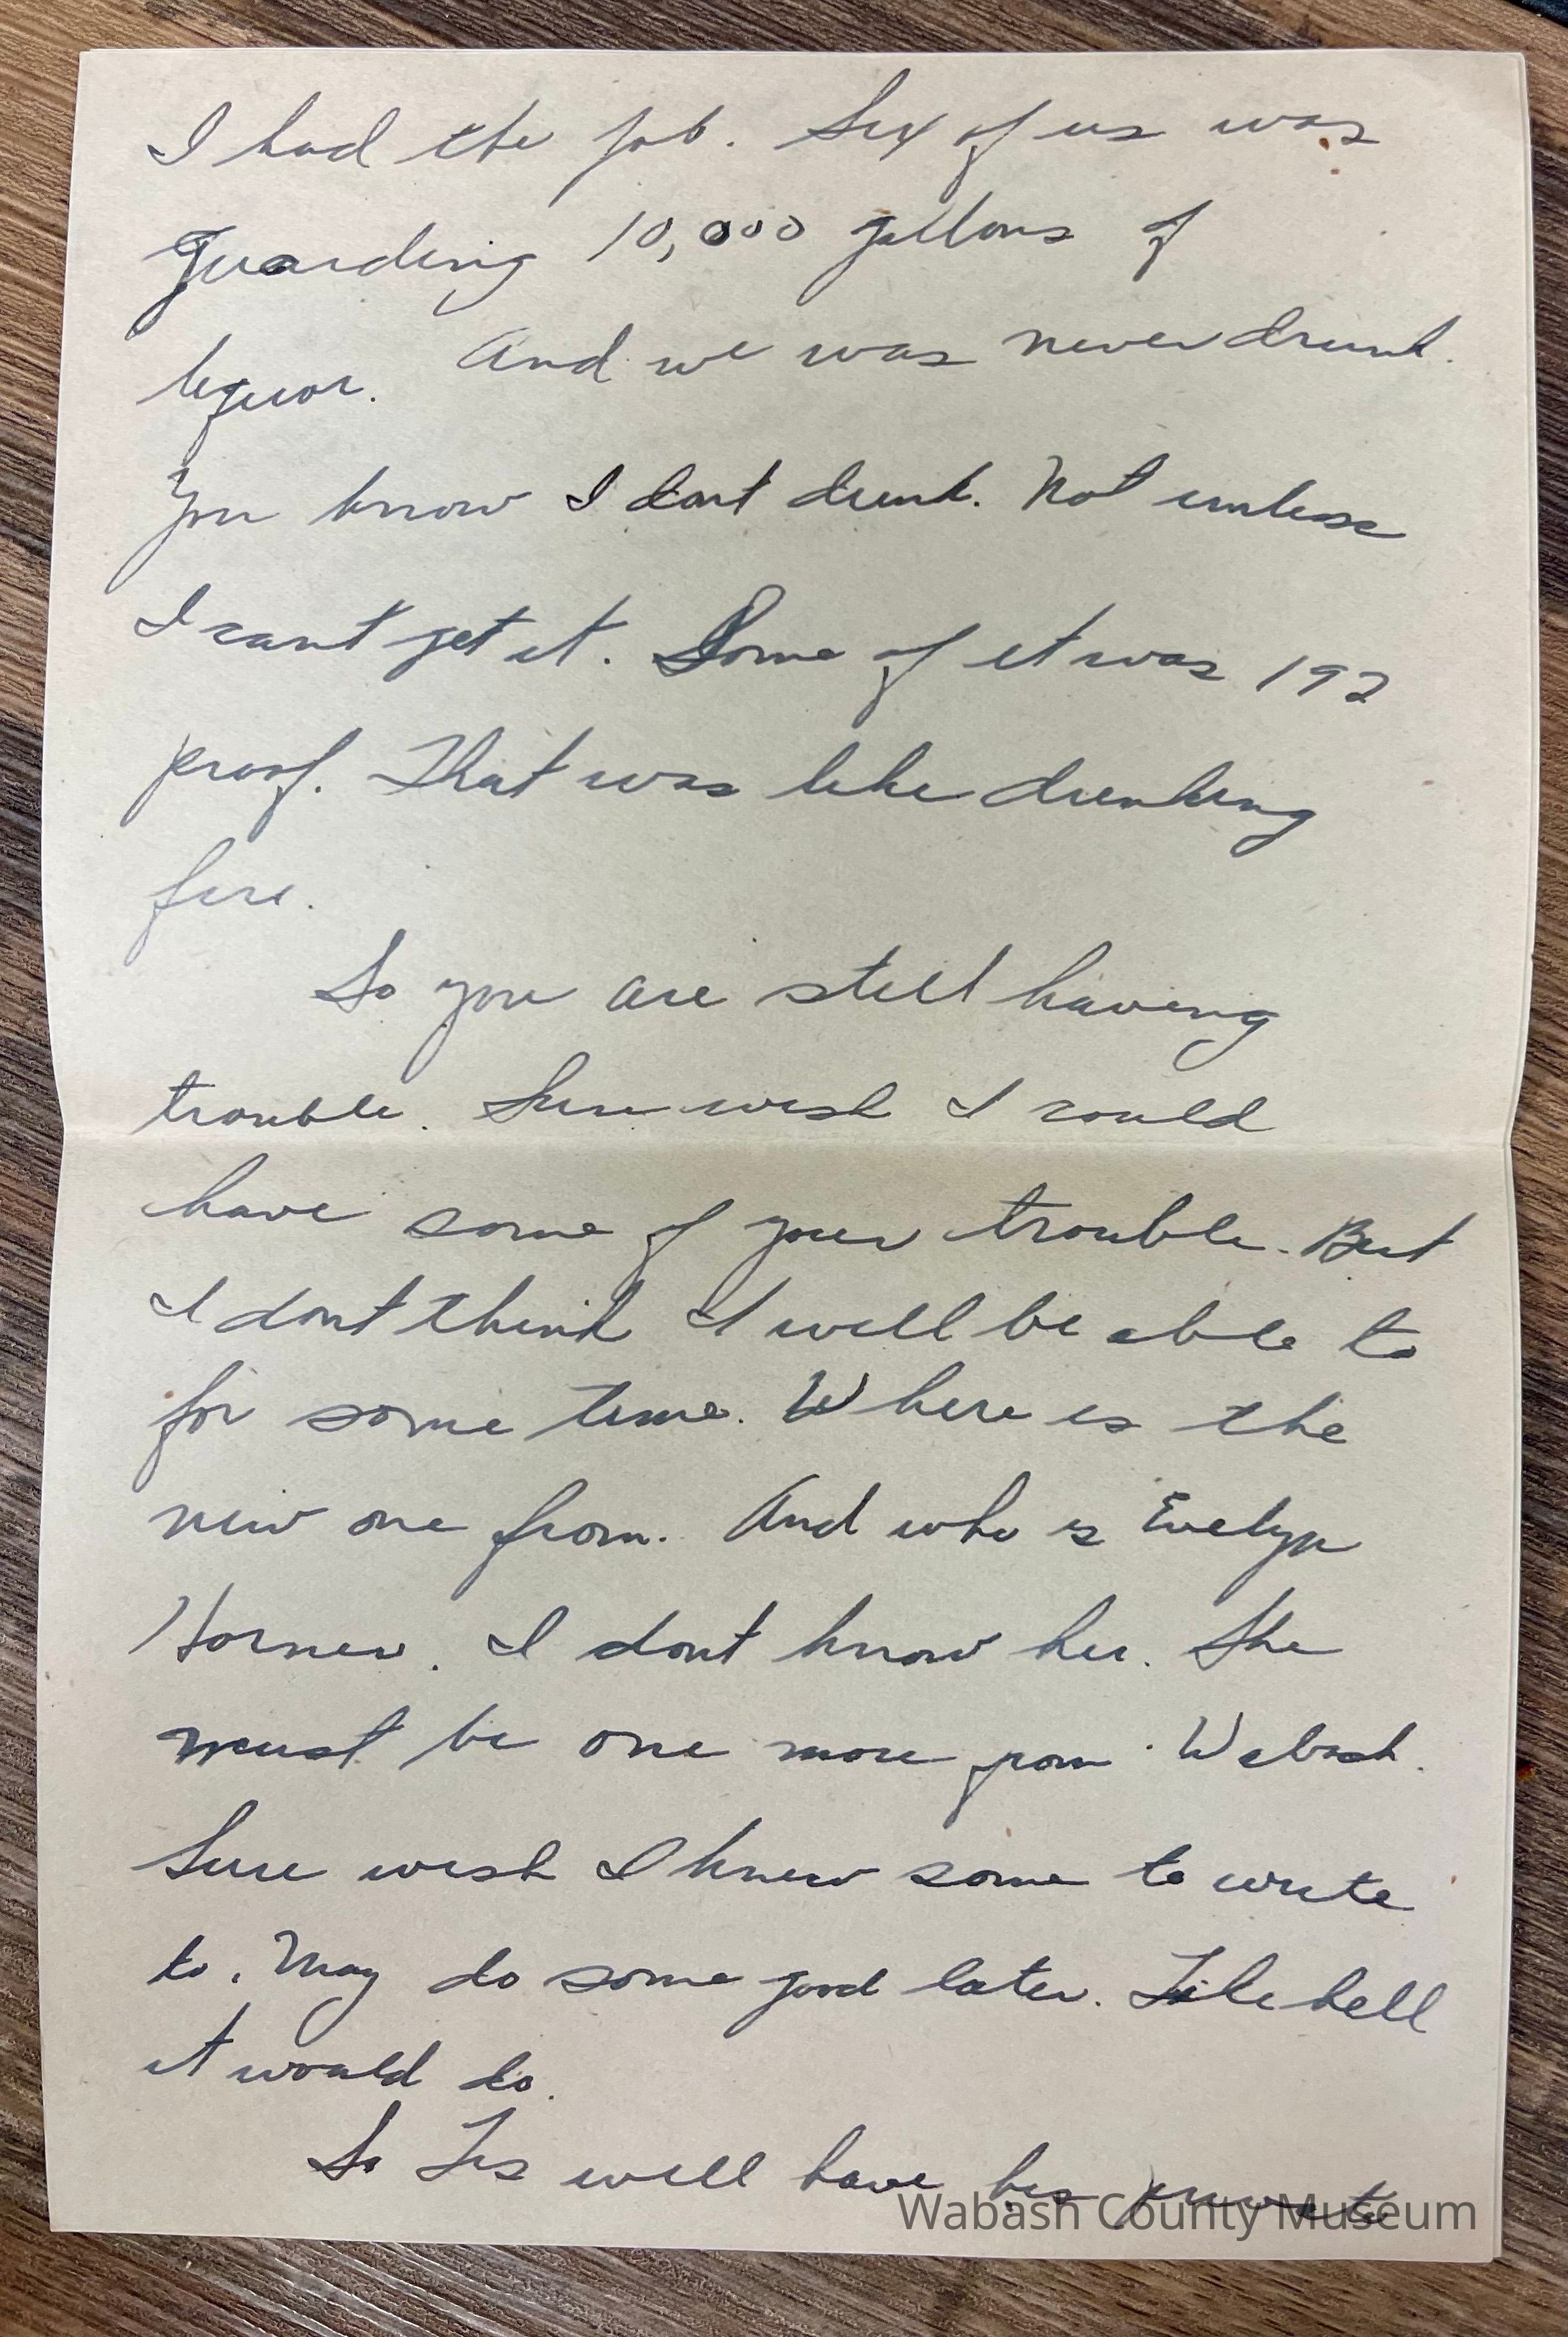 I had the job. Six of us was
guarding 10,000 gallons of
liquor. And we was never drunk.
You know I dont drink. Not unless
I cant get it. Some of it was 192
proof. That was like drinking
fire.
So you are still having
trouble. Sure wish I could
have some of your trouble. But
I dont think I will be able to
for some time. Where is the
new one from. And who is Evelyn
Horner. I dont know her. She
must be one more from Wabash.
Sure wish I knew some to write
to. May do some good later. Like hell
it would do.
So Les will have his private
Wabash County Museum